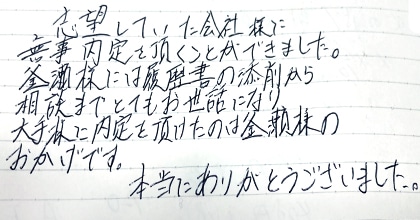 志望していた会社様に
無事内定を頂くことができました。
釜瀬様には履歴書の添削から
相談までとてもお世話になり
大手様に内定を頂けたのは釜瀬様の
おかげです。
本当にありがとうございました。